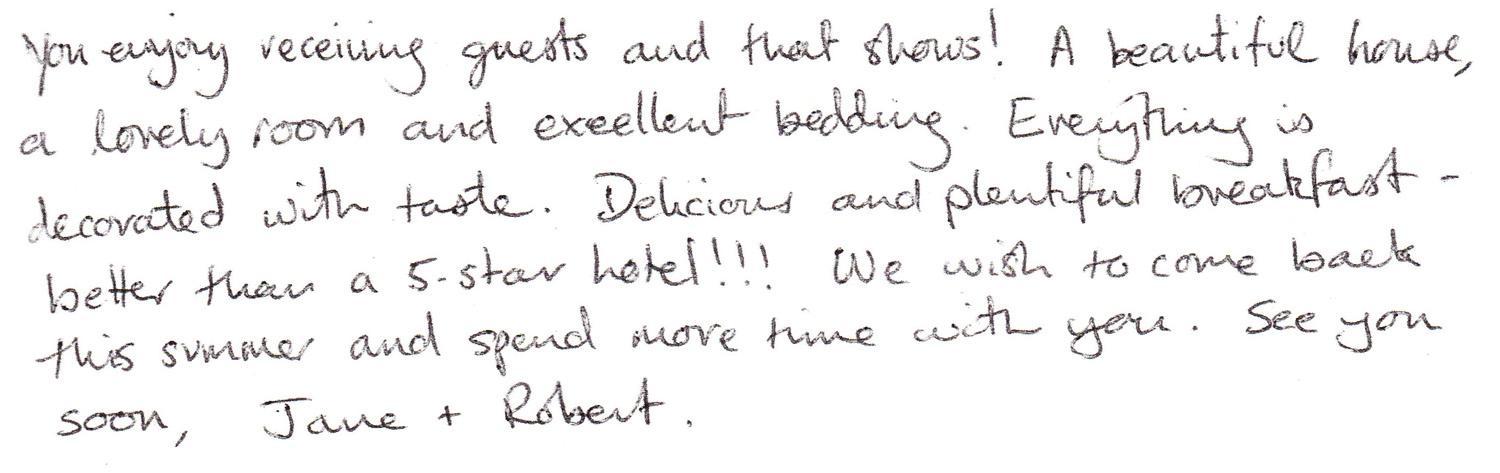 You enjoy receiving guests and that shows! A beautiful house,
a lovely room and excellent bedding. Everything is
decorated with taste. Delicious and plentiful breakfast -
better than a 5-star hotel!!! We wish to come back
this summer and spend more time with you. See you
soon, Jane + Robert.